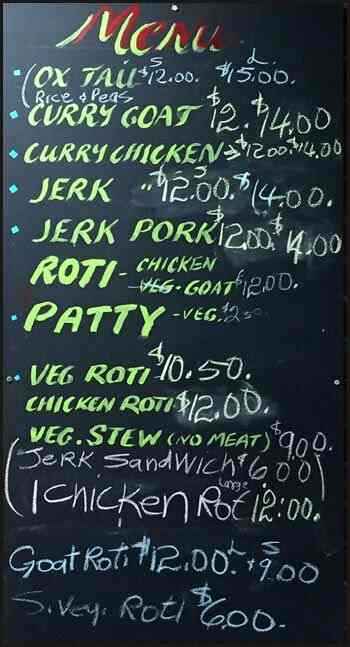 Menu
S L
OX TAIL $12.00. $15.00.
(Rice & Peas
CURRY GOAT $12. $14.00
CURRY CHICKEN $12.00 $14.00
JERK " $12.00. $14.00.
JERK PORK $12.00 $14.00
ROTI - CHICKEN
VEG. GOAT $12.00.
PATTY - VEG. $2
VEG ROTI $10.50.
CHICKEN ROTI $12.00.
VEG. STEW (NO MEAT) $9.00.
(JERK SANDWICH $6.00)
1 CHICKEN ROTI Large 12:00.
Goat Roti $12.00. L + $9.00 S
S. Veg. Roti $6.00.